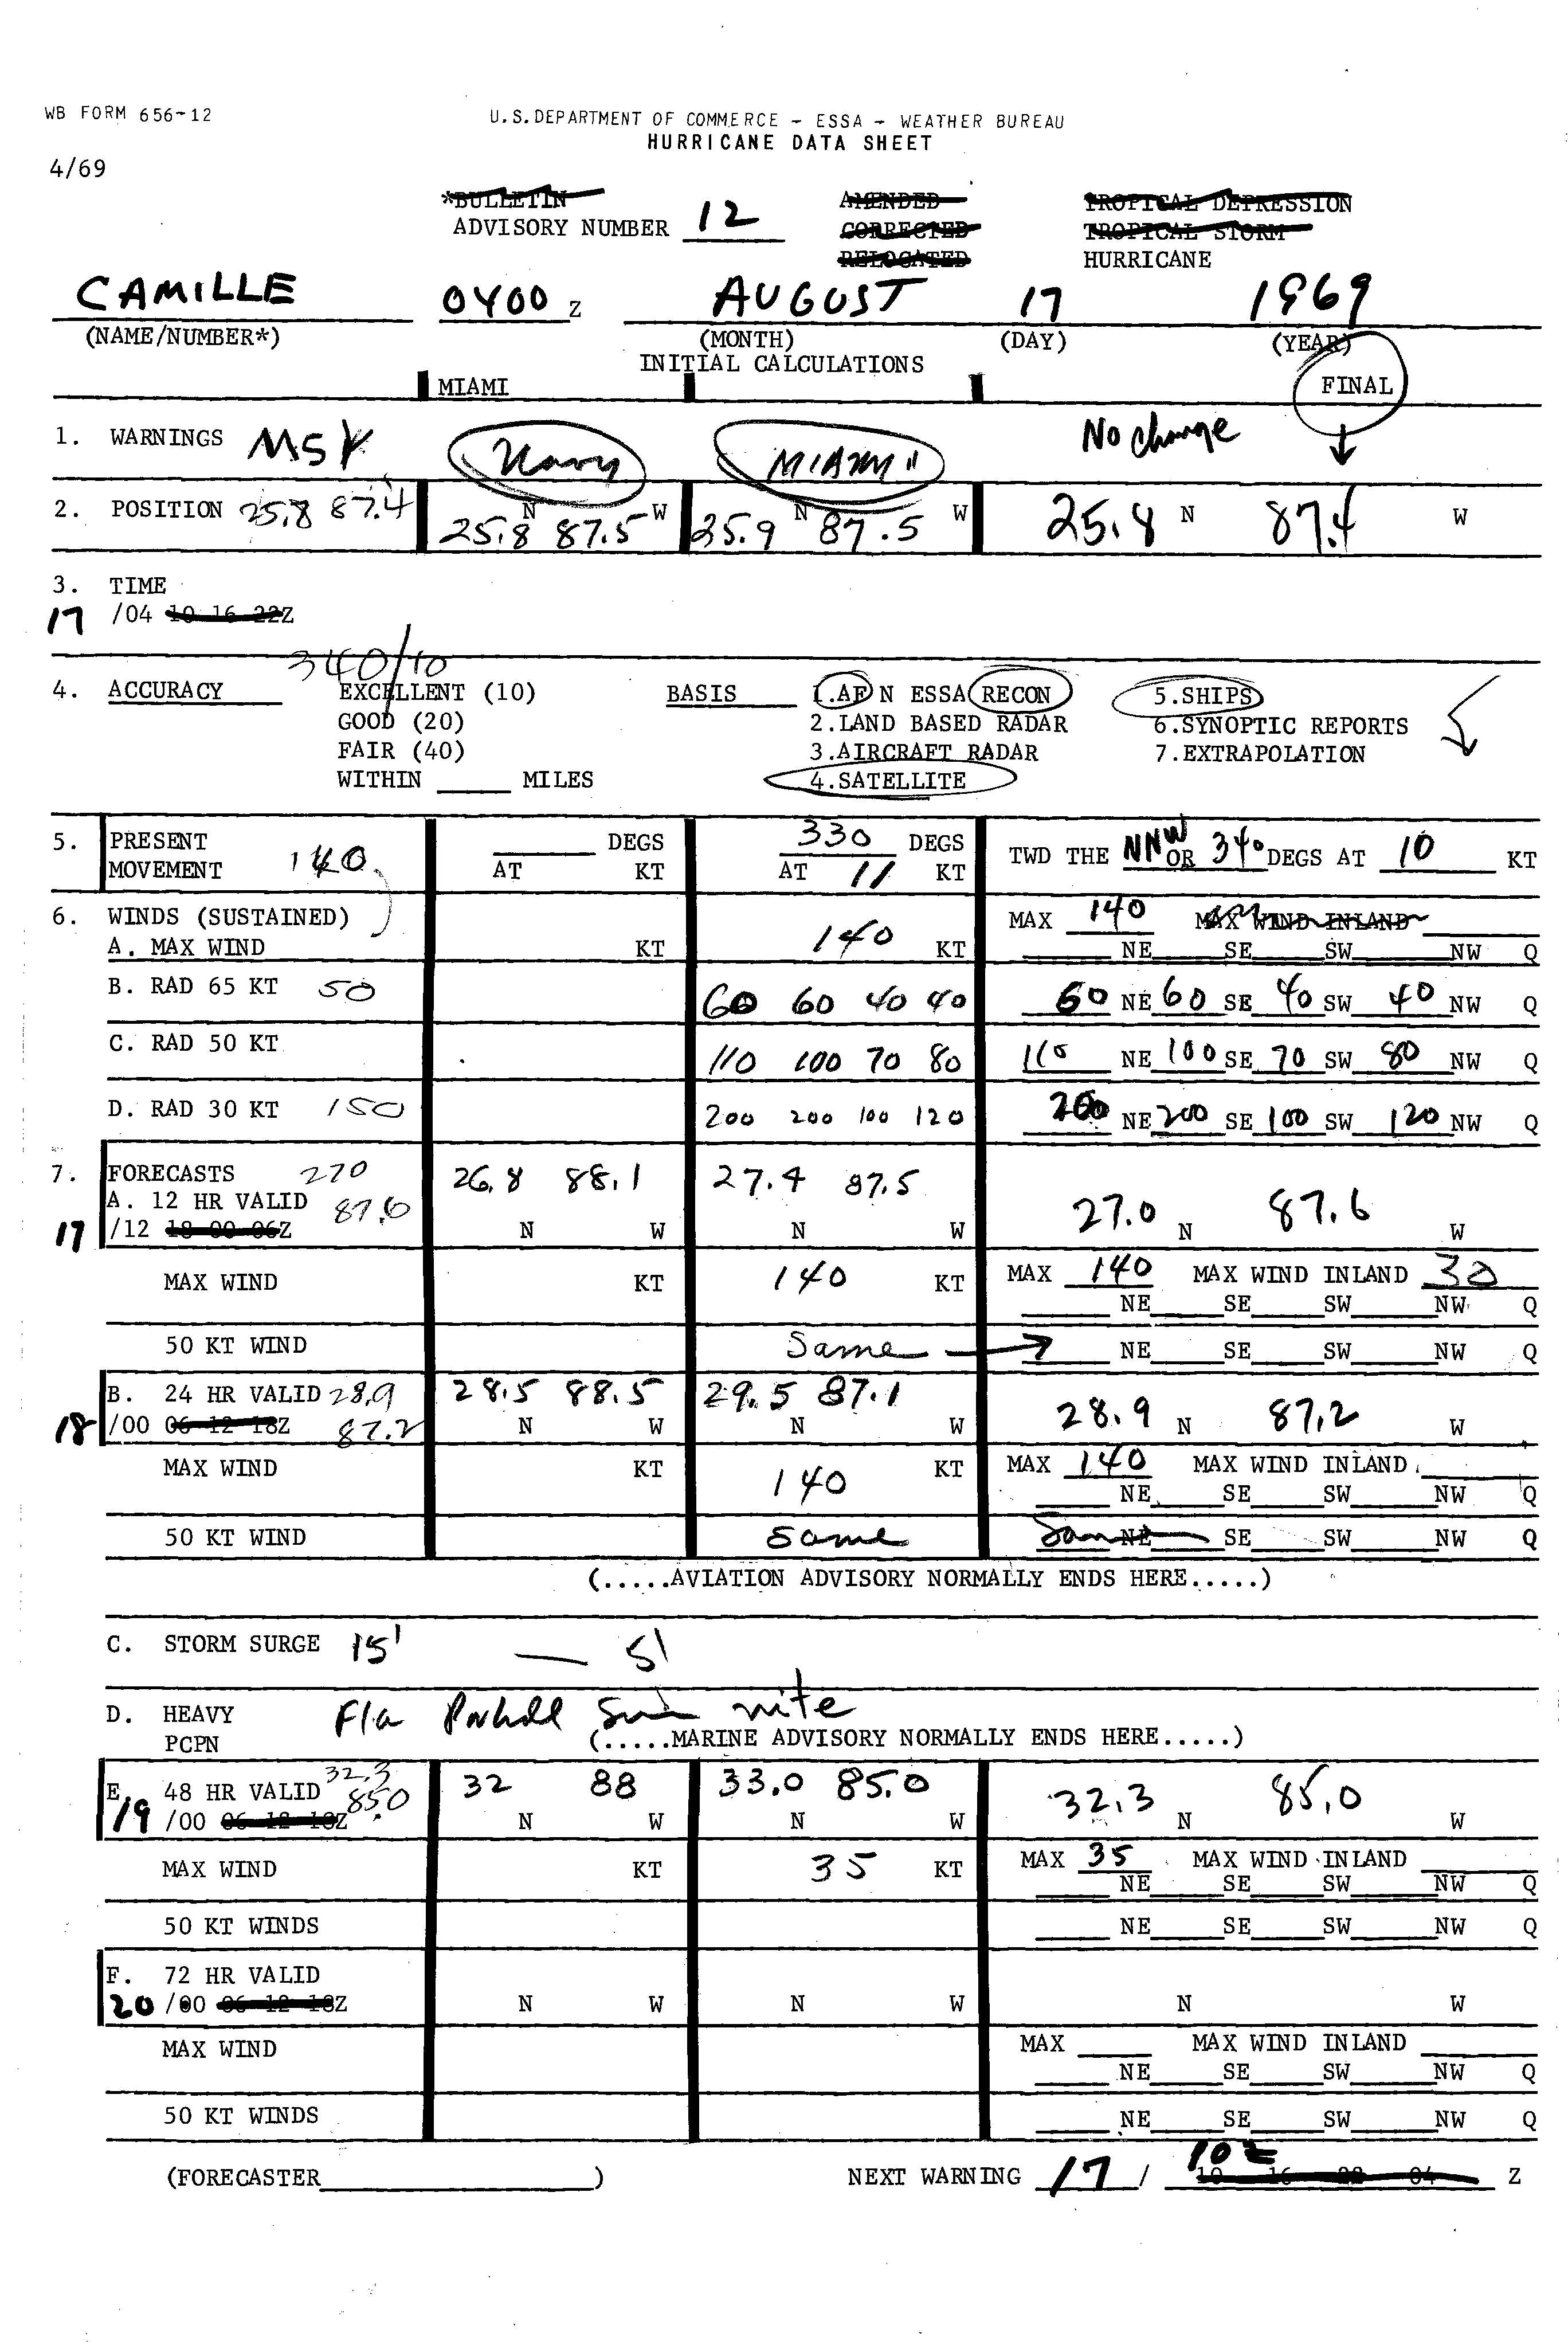 WB FORM 656-12
U.S.DEPARTMENT OF COMMERCE - ESSA - WEATHER BUREAU
HURRICANE DATA SHEET
4/69
*BULLETIN AMENDED TROPICAL DEPRESSION
ADVISORY NUMBER 12 CORRECTED TROPICAL STORM
RELOCATED HURRICANE
CAMILLE 0400 Z AUGUST 17 1969
(NAME/NUMBER*) (MONTH) (DAY) (YEAR)
INITIAL CALCULATIONS
MIAMI FINAL
1. WARNINGS MSY Navy MIAMI No change
2. POSITION 25.8 87.4 25.8 N 87.5 W 25.9 N 87.5 W 25.8 N 87.4 W
3. TIME
17 /04 10 16 22Z
340/10
4. ACCURACY EXCELLENT (10) BASIS 1.AF N ESSA RECON 5.SHIPS
GOOD (20) 2.LAND BASED RADAR 6.SYNOPTIC REPORTS
FAIR (40) 3.AIRCRAFT RADAR 7.EXTRAPOLATION
WITHIN MILES 4.SATELLITE
5. PRESENT DEGS 330 DEGS TWD THE NNW OR 340 DEGS AT 10 KT
MOVEMENT 140 AT KT AT 11 KT
6. WINDS (SUSTAINED) MAX 140 MAX WIND INLAND
A. MAX WIND KT 140 KT NE SE SW NW Q
B. RAD 65 KT 50 60 60 40 40 60 NE 60 SE 40 SW 40 NW Q
C. RAD 50 KT 110 100 70 80 110 NE 100 SE 70 SW 80 NW Q
D. RAD 30 KT 150 200 200 100 120 200 NE 200 SE 100 SW 120 NW Q
7. FORECASTS 270 26.8 88.1 27.4 87.5
A. 12 HR VALID 87.6 27.0 N 87.6 W
17 /12 18 00 06Z N W N W
MAX WIND KT 140 KT MAX 140 MAX WIND INLAND 30
NE SE SW NW Q
50 KT WIND Same NE SE SW NW Q
B. 24 HR VALID 28.9 28.5 88.5 29.5 87.1
18 /00 06 12 18Z 87.2 N W N W 28.9 N 87.2 W
MAX WIND KT 140 KT MAX 140 MAX WIND INLAND
NE SE SW NW Q
50 KT WIND Same Same NE SE SW NW Q
(.....AVIATION ADVISORY NORMALLY ENDS HERE.....)
C. STORM SURGE 15' — 5'
D. HEAVY Fla Panhdl Sun nite
PCPN (.....MARINE ADVISORY NORMALLY ENDS HERE.....)
E. 48 HR VALID 32.3 85.0 32 88 33.0 85.0 32.3 N 85.0 W
19 /00 06 12 18Z N W N W
MAX WIND KT 35 KT MAX 35 MAX WIND INLAND
NE SE SW NW Q
50 KT WINDS NE SE SW NW Q
F. 72 HR VALID
20 /00 06 12 18Z N W N W N W
MAX WIND MAX MAX WIND INLAND
NE SE SW NW Q
50 KT WINDS NE SE SW NW Q
(FORECASTER ) NEXT WARNING 17 / 10Z 10 16 22 04 Z